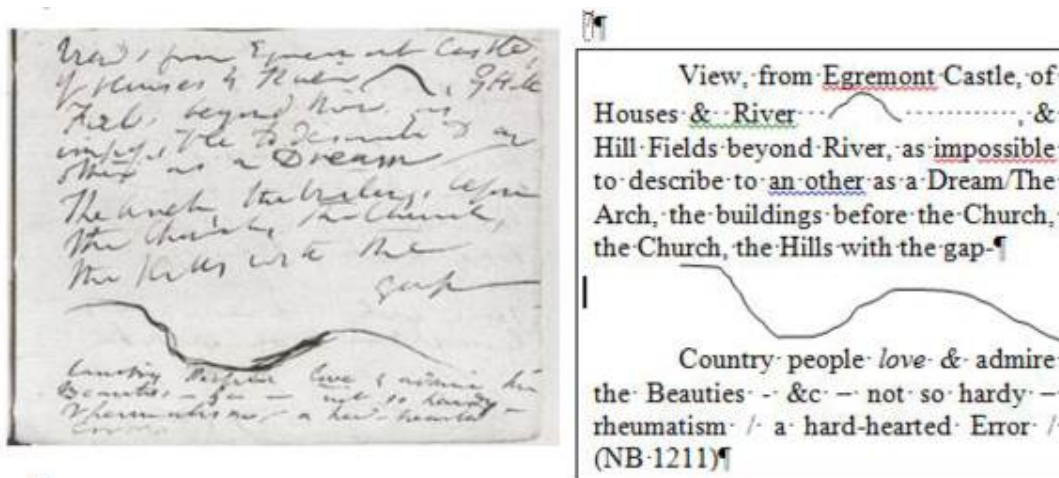 View, from Egremont Castle,
of Houses & River , & Hill
Fields beyond River, as
impossible to describe to an
other as a Dream /
The Arch, the buildings before
the Church, the Church,
the Hills with the
gap —
Country People love & admire the
Beauties — &c — not so hardy —
rheumatism / a hard-hearted —
Error
View, from Egremont Castle, of
Houses & River , &
Hill Fields beyond River, as impossible
to describe to an other as a Dream/The
Arch, the buildings before the Church,
the Church, the Hills with the gap-¶
Country people love & admire
the Beauties - &c – not so hardy –
rheumatism / a hard-hearted Error /
(NB 1211)¶